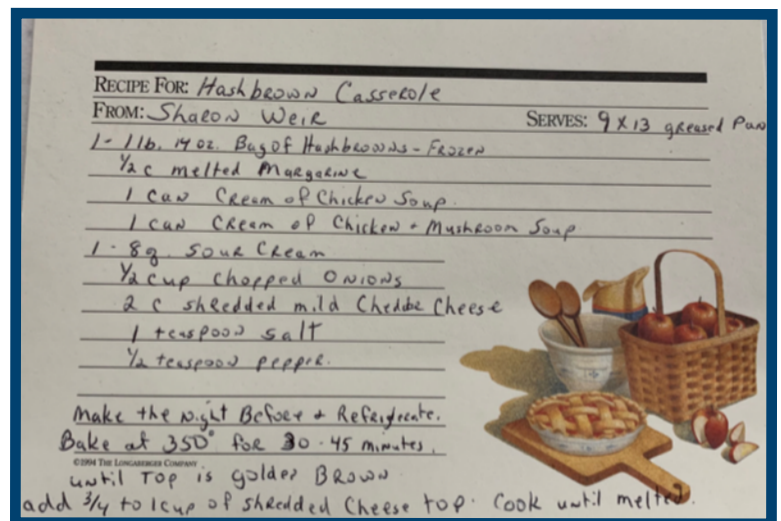 RECIPE FOR: Hashbrown Casserole
FROM: Sharon Weir SERVES: 9 x 13 greased Pan
1 - 1 lb. 14 oz. Bag of Hashbrowns - Frozen
1/2 c melted Margarine
1 can Cream of Chicken Soup.
1 can Cream of Chicken + Mushroom Soup
1 - 8 Sour Cream
1/2 cup chopped Onions
2 c shredded mild Cheese
1 teaspoon salt
1/2 teaspoon pepper.
Make the night Before + Refrigerate.
Bake at 350° for 30-45 minutes.
©1994 THE LONGABERGER COMPANY
until Top is golden Brown
add 3/4 to 1 cup of shredded Cheese top. Cook until melted.